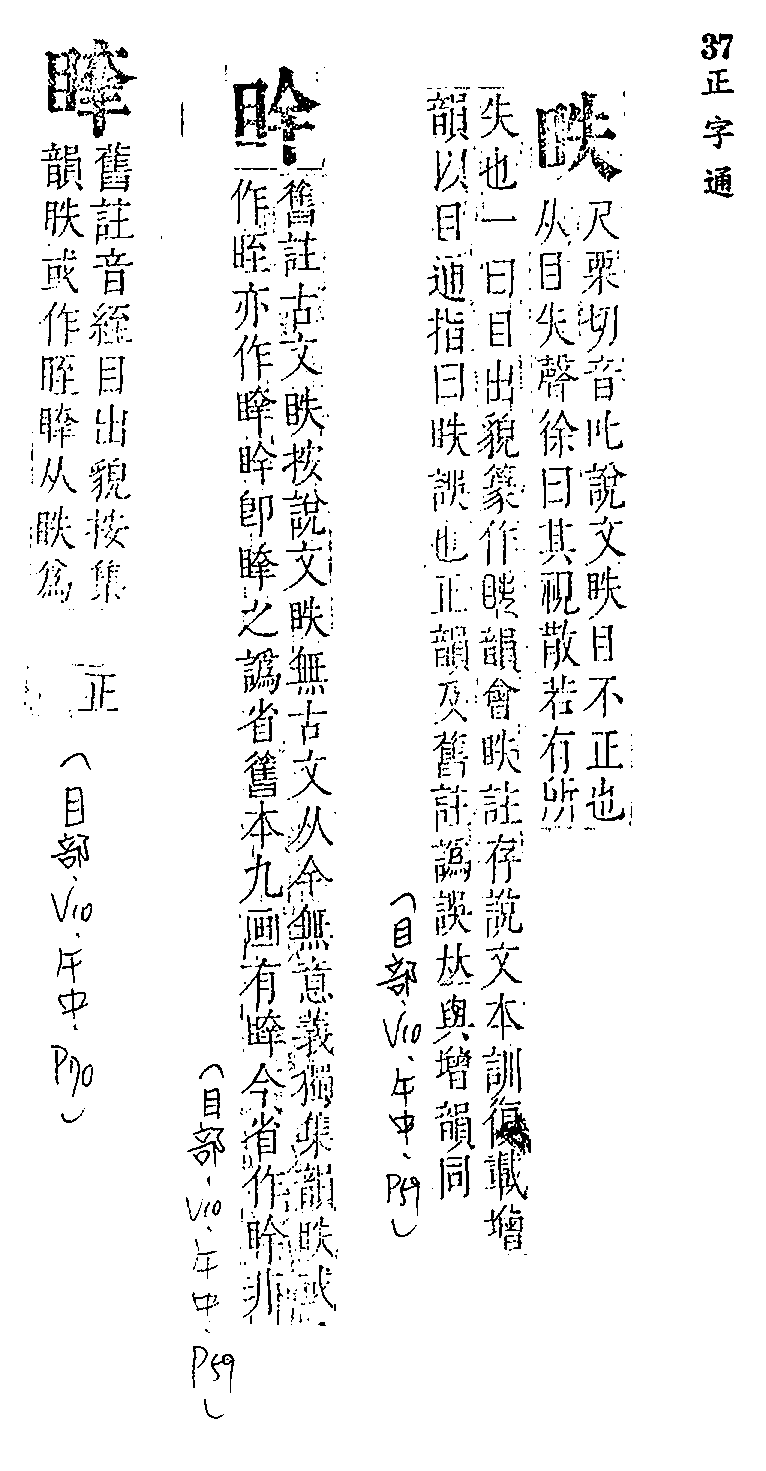 37正字通
眣
尺栗切音叱說文眣目不正也
从目失聲徐曰其視散若有所
失也一曰目出貌篆作眣韻會眣註存說文本訓復譏增
韻以目通指曰眣誤也正韻及舊註譌誤𠀤與增韻同
(目部、V10、午中、P59)
舊註古文眣按說文眣無古文从伞無意義獨集韻眣或
作眰亦作睳即之譌省舊本九画有今省作非
(目部、V10、午中、P59)
舊註音絰目出貌按集
韻眣或作眰从眣為
正
(目部、V10、午中、P70)